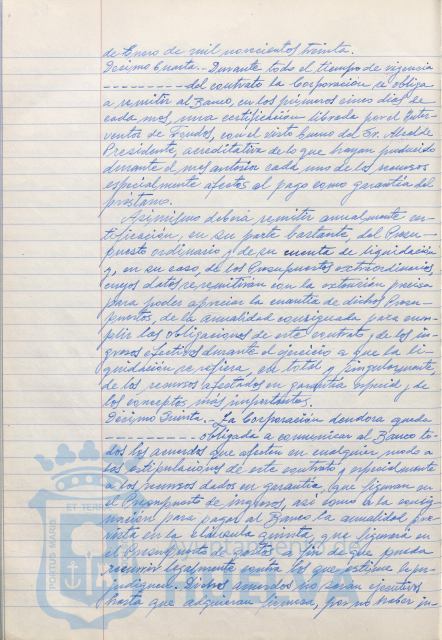 de Enero de mil novecientos treinta.
Décimo Cuarta.- Durante todo el tiempo de vigencia
- - - - - - - - - del contrato la Corporación se obliga
a remitir al Banco, en los primeros cinco días de
cada mes, una certificación librada por el Inter-
ventor de Fondos, con el visto bueno del Sr. Alcalde
Presidente, acreditativa de lo que hayan producido
durante el mes anterior cada uno de los recursos
especialmente afectos al pago como garantía del
préstamo.
Asimismo deberá remitir anualmente cer-
tificación, en su parte bastante, del Presu-
puesto ordinario y de su cuenta de liquidación
y, en su caso, de los Presupuestos extraordinarios,
cuyos datos se remitirán con la extensión precisa
para poder apreciar la cuantía de dichos Presu-
puestos, de la anualidad consignada para cum-
plir las obligaciones de este contrato y de los in-
gresos efectivos durante el ejercicio a que la li-
quidación se refiera, en total y singularmente,
de los recursos afectados en garantía especial y de
los conceptos más importantes.
Décimo Quinta.- La Corporación deudora queda
- - - - - - - - - obligada a comunicar al Banco to-
dos los acuerdos que afecten en cualquier modo a
las estipulaciones de este contrato y especialmente
a los recursos dados en garantía que figuran en
el Presupuesto de ingresos, así como a la consig-
nación para pagar al Banco la anualidad pre-
vista en la cláusula quinta, que figurará en
el Presupuesto de gastos a fin de que pueda
recurrir legalmente contra los que estime le per-
judiquen. Dichos acuerdos no serán ejecutivos
hasta que adquieran firmeza, por no haber in-
PORTUS MARIS
ET TERRAE
HUELVA